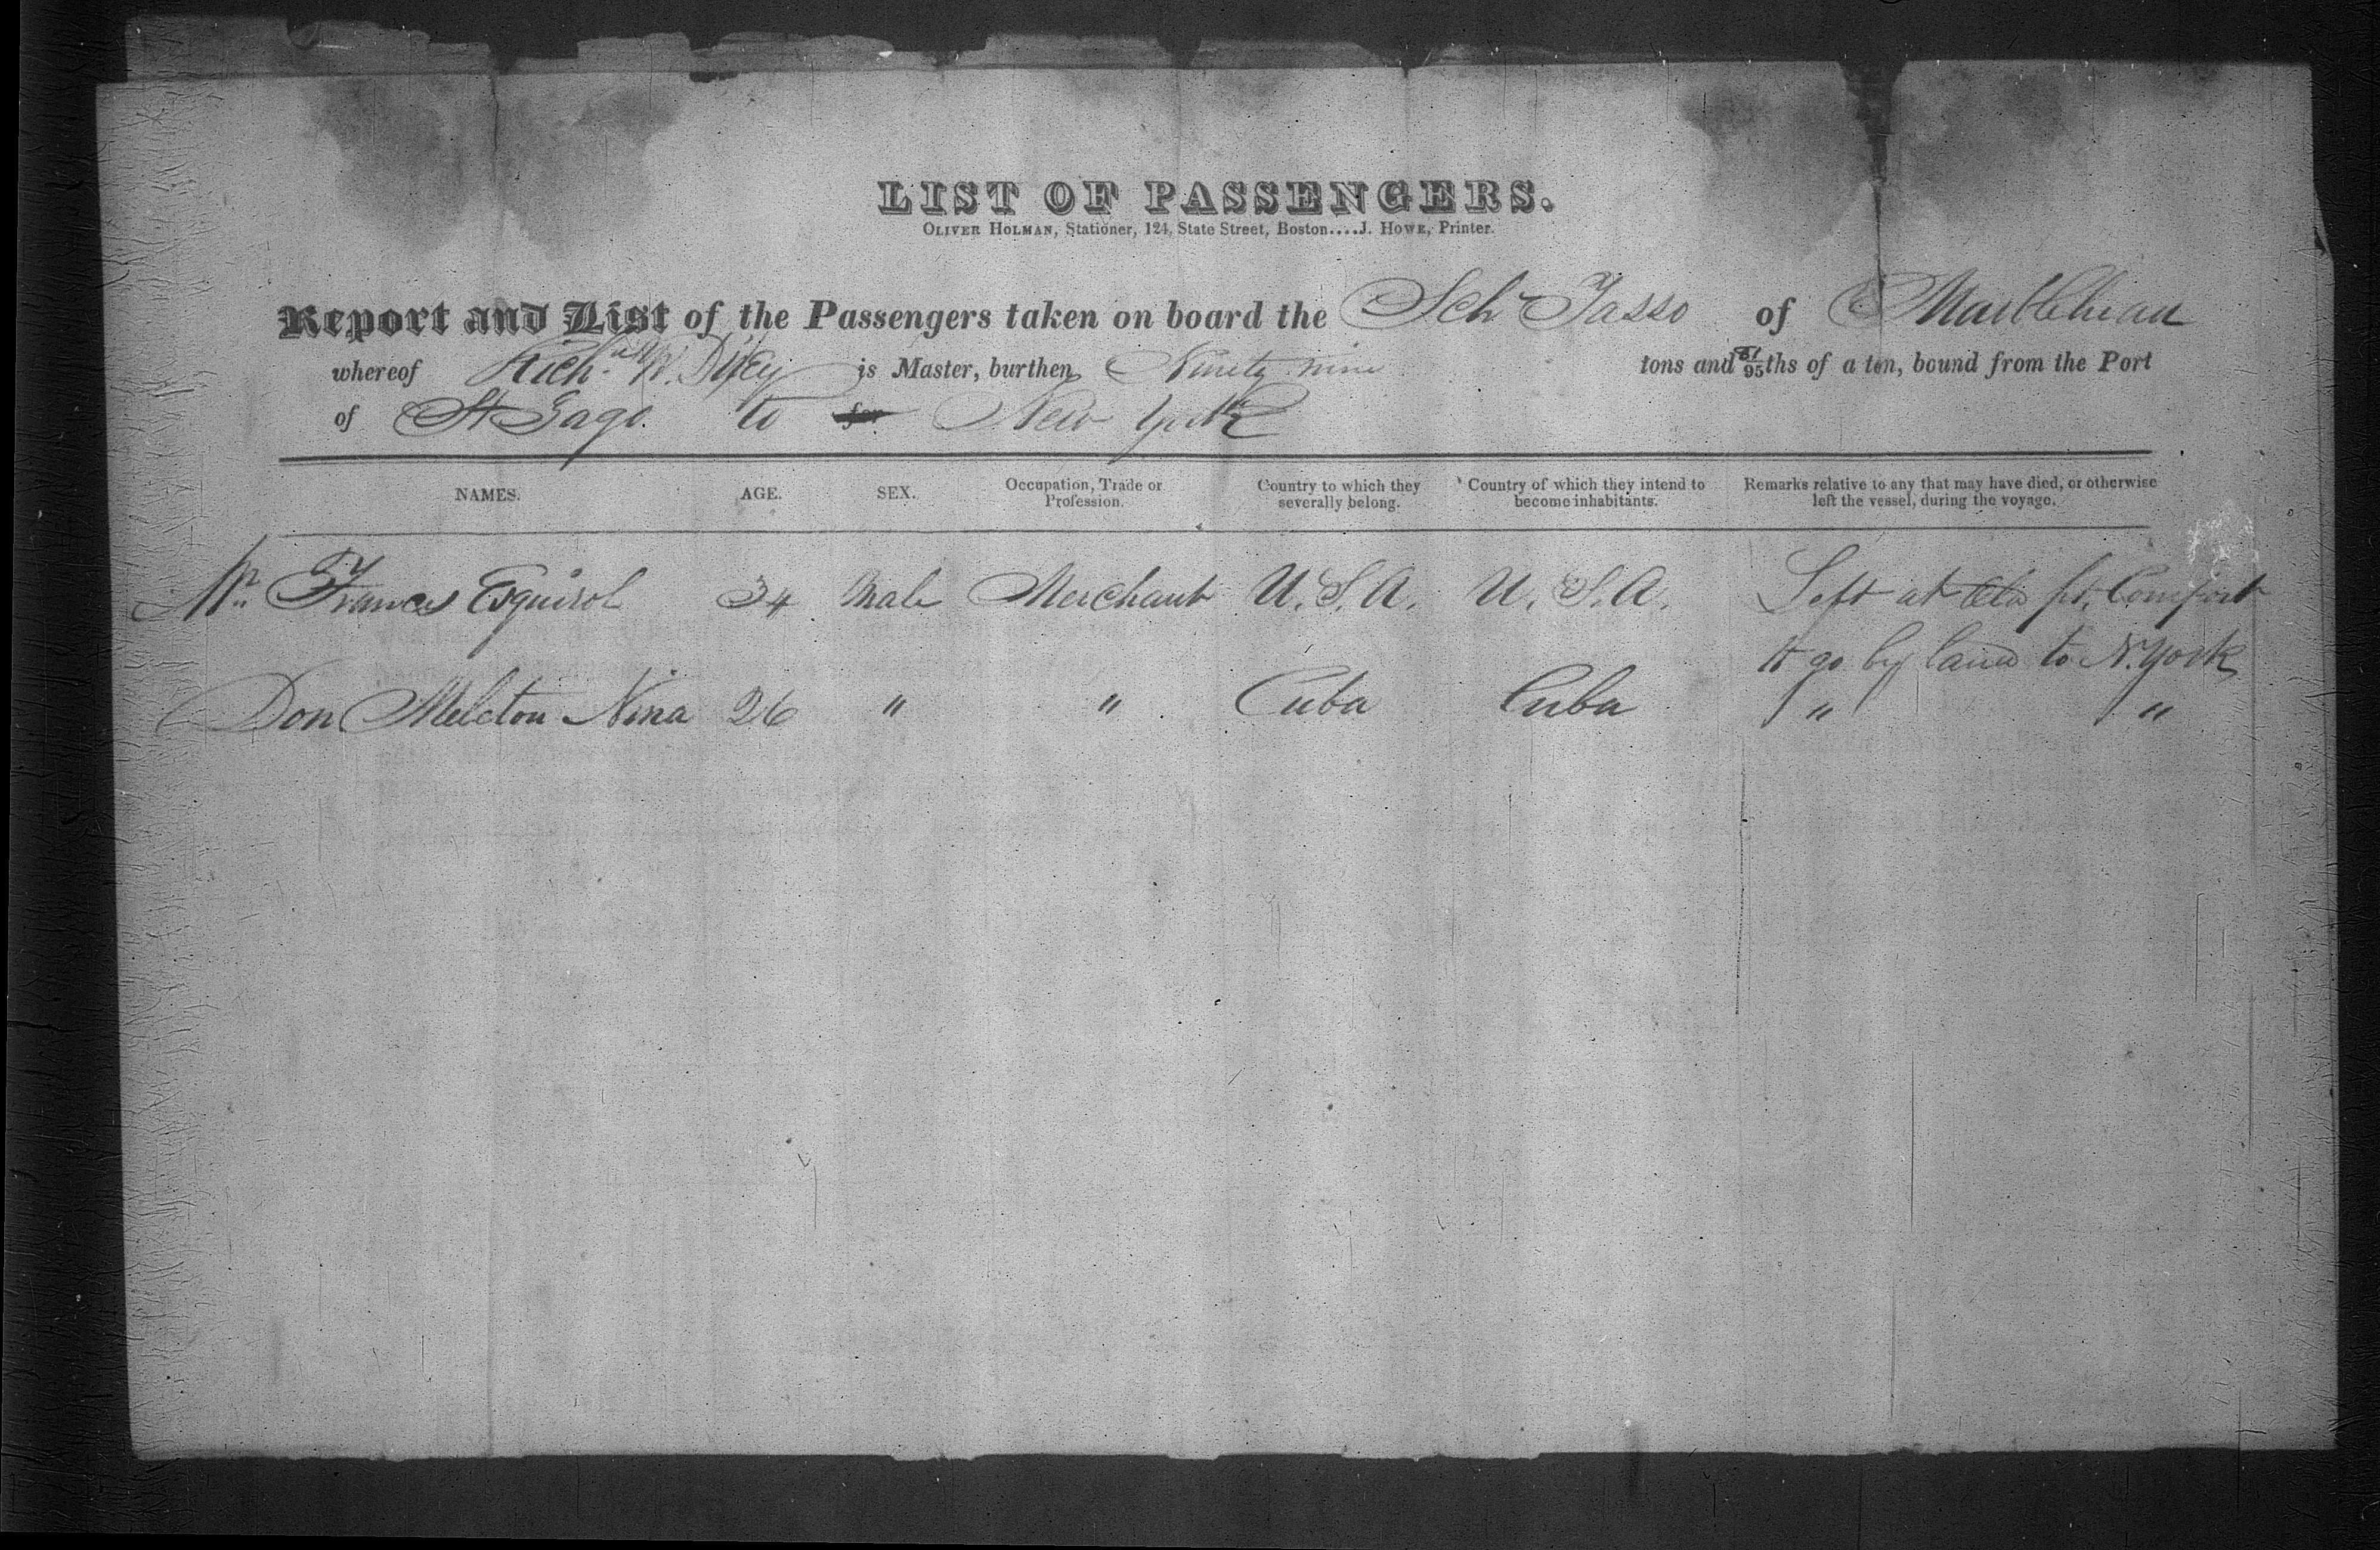 LIST OF PASSENGERS.
OLIVER HOLMAN, Stationer, 124, State Street, Boston....J. HOWE, Printer.
Report and List of the Passengers taken on board the Schr Tasso of Marblehead
whereof Richd W. Dixey is Master, burthen Ninety nine tons and 51/95ths of a ton, bound from the Port
of St Iago. to for New York
NAMES. AGE. SEX. Occupation, Trade or Profession. Country to which they severally belong. Country of which they intend to become inhabitants. Remarks relative to any that may have died, or otherwise left the vessel, during the voyage.
Mr Frances Esquirol 34 Male Merchant U.S.A. U.S.A. Left at pt. Comfort
to go by land to N.York
Don Melcton Nina 26 " " Cuba Cuba " "